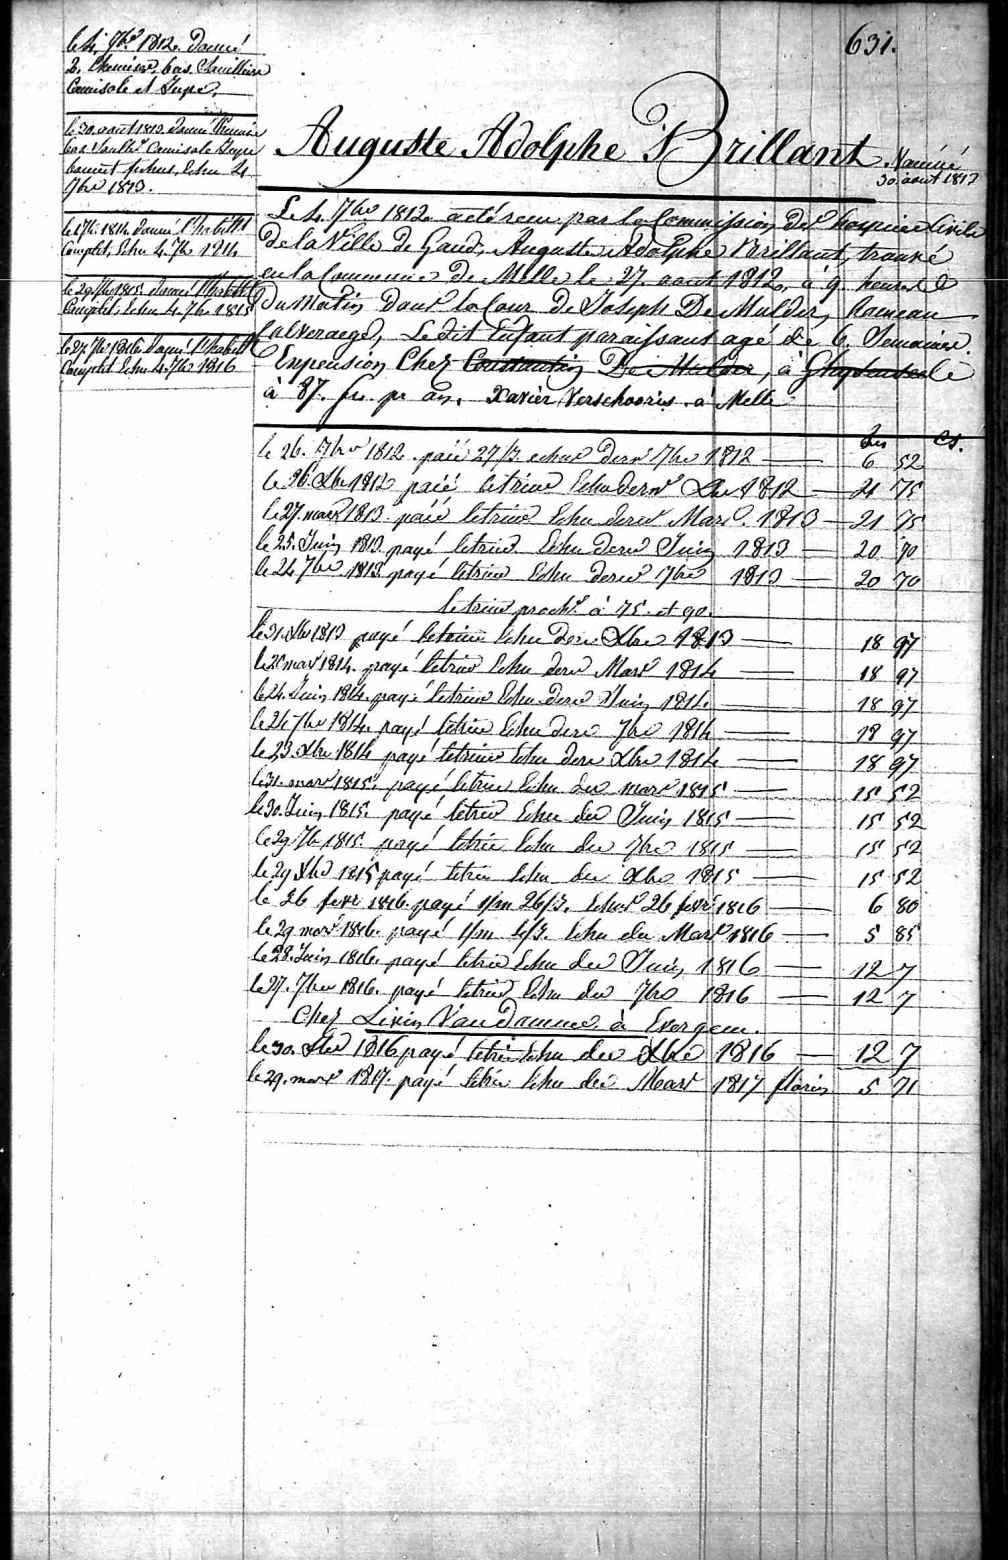 631.
le 4. 7bre 1812. Donné
2. Chemises. bas.
Camisole et Jupe.
le 30. août 1813. Donné Chemise
bas Camisole Jupe
bonnet fichus, Echu 4
7bre 1813.
le 1814 Donné l'habillt
Complet, Echu 4. 7bre 1814
le 29 7bre 1815 Donné l'habillt
Complet, Echu 4. 7bre 1815
le 27 7bre 1816 Donné l'habillt
Complet Echu 4. 7bre 1816
Auguste Adolphe Brillant
Naméné
30. août 1817
Le 4. 7bre 1812 a été recu par la Commission des hospices Civils
De la Ville de Gand, Auguste Adolphe Brillant, trouvé
en la Commune De Melle le 27. aout 1812, à 9. heures
Du Matin Dans la Cour de Joseph De Mulder, hameau
Calveraege, Ledit Enfant paraissant agé de 6. Semaines.
Enpension Chez Constantin De Mulder, à
à 87. frs. pr an. Xavier Verschooris à Melle
frs cs.
le 26. 7bre 1812 paié 27/J. echus dern 7bre 1812 — 6 52
le 26. Xbre 1812 paié letrim Echu dern Xbre 1812 — 21 75
le 27. mars 1813. paié letrim Echu dern Mars. 1813 — 21 75
le 25. Juin 1813. payé letrim Echu dern Juin 1813 — 20 70
le 24 7bre 1813 payé letrim Echu dern 7bre 1813 — 20 70
letrim prochn à 75. et 90.
le 31. Xbre 1813 payé letrim Echu dern Xbre 1813 — 18 97
le mars 1814. payé letrim Echu dern Mars 1814 — 18 97
le 24. Juin 1814. payé letrim Echu dern Juin 1814. — 18 97
le 24 7bre 1814. payé letrim Echu dern 7bre 1814 — 18 97
le 23. Xbre 1814 payé letrim Echu dern Xbre 1814 — 18 97
le 31. mars 1815. payé letrim Echu der mars 1815 — 15 52
le 30. Juin 1815. payé letrim Echu der Juin 1815 — 15 52
le 29 7b 1815. payé letrim Echu der 7bre 1815 — 15 52
le 29 Xbre 1815 payé letrim Echu der Xbre 1815 — 15 52
le 26 fevr 1816. payé 1/m 26/J. Echus 26 fevr 1816 — 6 80
le 29 mars 1816. payé 1/m 4/J. Echu der Mars 1816 — 5 85
le 28. Juin 1816. payé letrim Echu der Juin 1816 — 12 7
le 27. 7bre 1816. payé letrim Echu der 7bre 1816 — 12 7
Chez Livin Van Damme à Evergem.
le 30. Xbre 1816 payé letrim Echu der Xbre 1816 — 12 7
le 29. mars 1817. payé letrim Echu der Mars 1817 florins 5 71